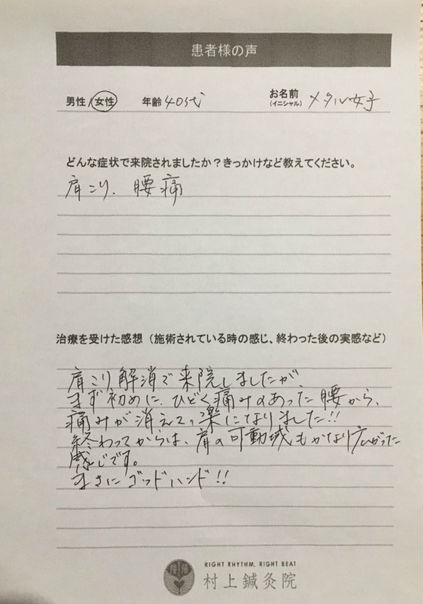 患者様の声
男性/女性 年齢 40代 お名前(イニシャル) メタル女子
どんな症状で来院されましたか？きっかけなど教えてください。
肩こり、腰痛
治療を受けた感想（施術されている時の感じ、終わった後の実感など）
肩こり解消で来院しましたが、
まず初めに、ひどく痛みのあった腰から、
痛みが消えてって楽になりました!!
終わってからは、肩の可動域もかなり広がった
感じです。
まさにゴッドハンド!!
RIGHT RHYTHM, RIGHT BEAT
村上鍼灸院